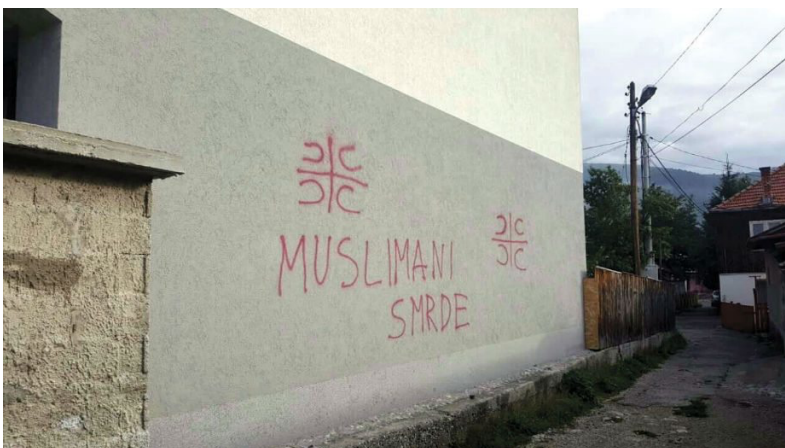 MUSLIMANI
SMRDE